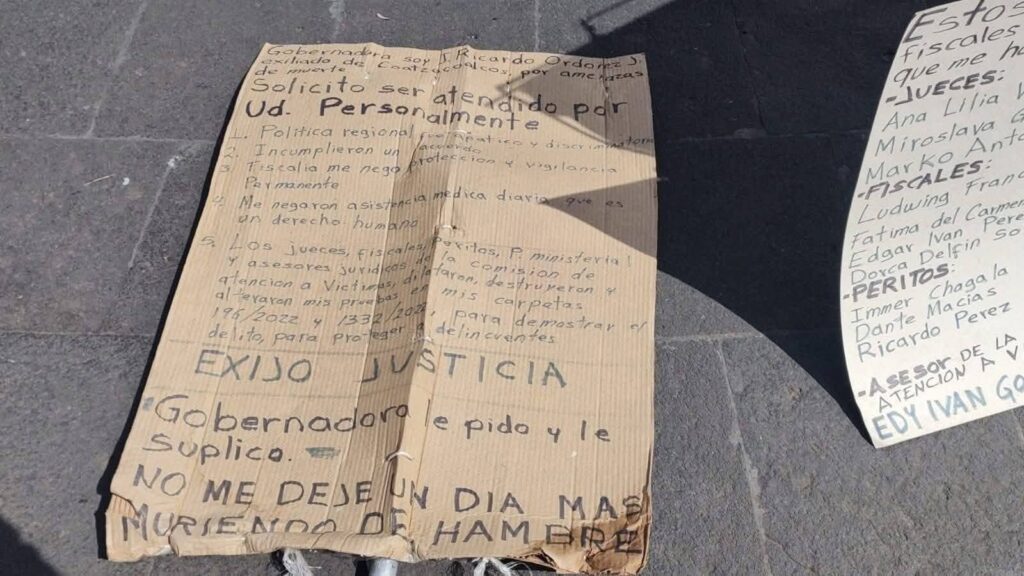 Gobernadora soy J. Ricardo Ordoñez J.
exiliado de Coatzacoalcos por amenazas
de muerte
Solicito ser atendido por
Ud. Personalmente
1. Politica regional y discriminatoria
2. Incumplieron un acuerdo
3. Fiscalia me nego proteccion y vigilancia
Permanente
4. Me negaron asistencia medica diario que es
un derecho humano
5. Los jueces, fiscales, peritos, P. ministerial
y asesores juridicos de la comision de
atencion a Victimas, destruyeron y
alteraron mis pruebas en mis carpetas
196/2022 y para demostrar el
delito, para proteger delincuentes
EXIJO JUSTICIA
Gobernadora le pido y le
suplico.
NO ME DEJE UN DIA MAS
MURIENDO DE HAMBRE
Estos
fiscales
que me
-JUECES:
Ana Lilia
Miroslava
Marko
-FISCALES:
Ludwing
Fatima del Carmen
Edgar Ivan
Dorca Delfin
-PERITOS:
Immer Chagala
Dante Macias
Ricardo Perez
-ASESOR DE LA
ATENCION A
EDY IVAN